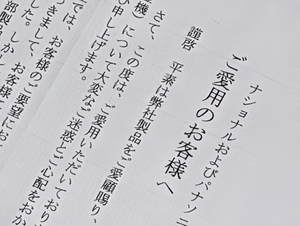 ナショナルおよびパナソニ
ご愛用のお客様へ
謹啓　平素は弊社製品をご愛顧賜り、
さて、この度は、ご愛用いただいており
機）について大変なご迷惑とご心配をおか
び申し上げます。
では、お客様のご要望にお
きまして、お客様
部製品
した。しかし